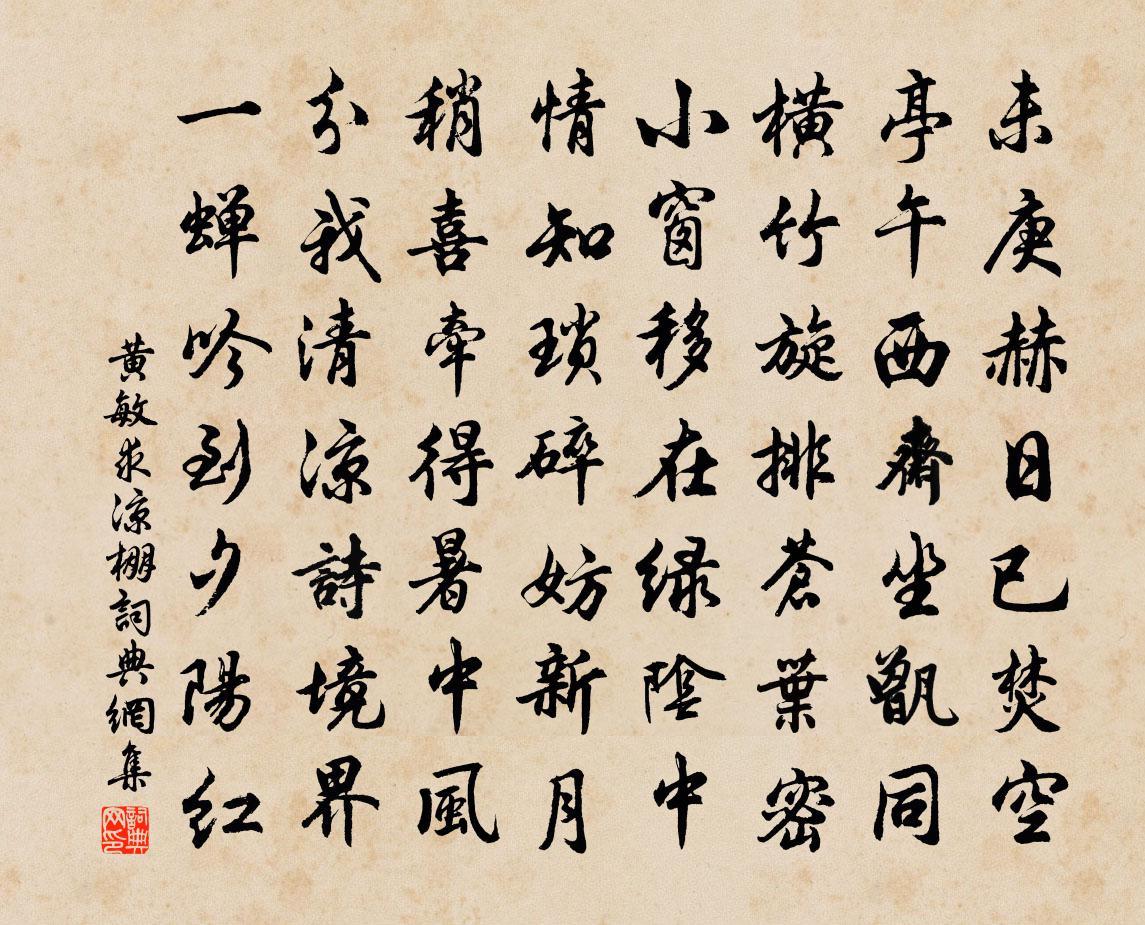 未庚赫日已焚空
亭午西齋坐甑同
橫竹旋排蒼葉密
小窗移在綠陰中
情知瑣碎妨新月
稍喜牽得暑中風
分我清涼詩境界
一蟬吟到夕陽紅
黃敏求涼棚詞典網集
詞典網印